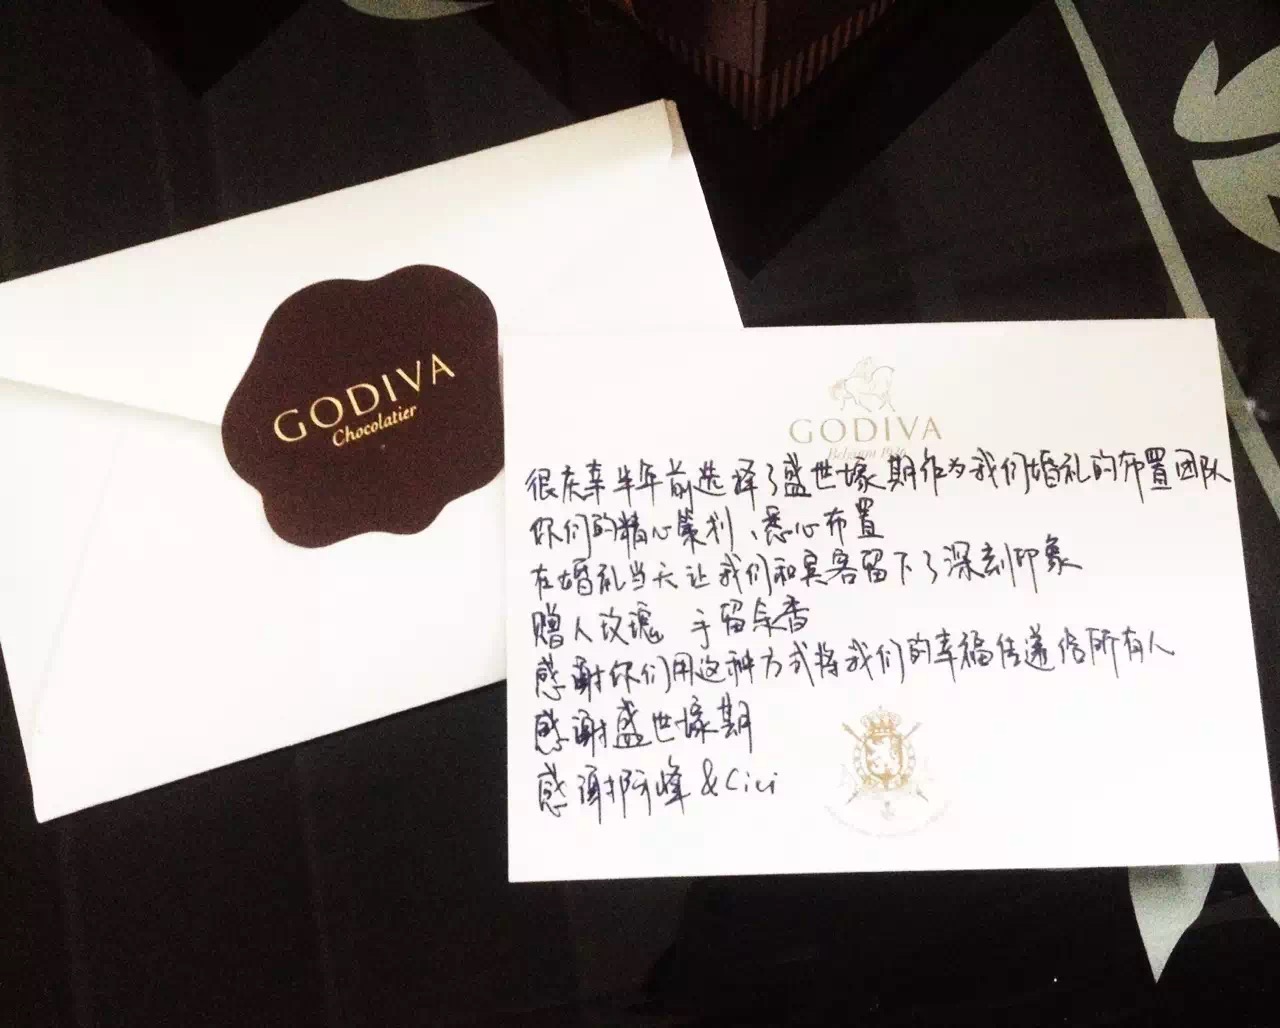 GODIVA
Chocolatier
GODIVA
Belgium 1926
很庆幸半年前选择了盛世嫁期作为我们婚礼的布置团队
你们的精心策划、悉心布置
在婚礼当天让我们和宾客留下了深刻印象
赠人玫瑰 手留余香
感谢你们用这种方式将我们的幸福传递给所有人
感谢盛世嫁期
感谢阿峰&Cici